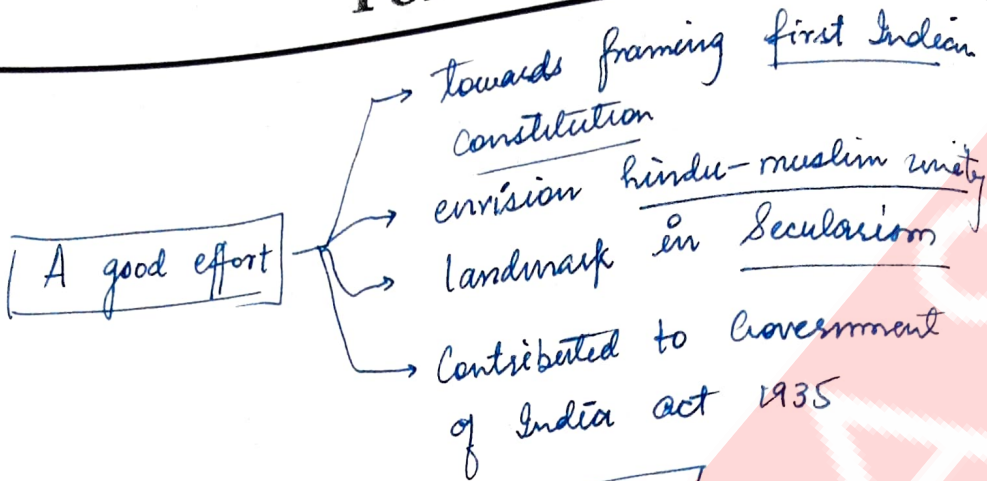 towards framing first Indian
constitution
envision hindu-muslim unity
A good effort
landmark in Secularism
Contributed to Government
of India act 1935